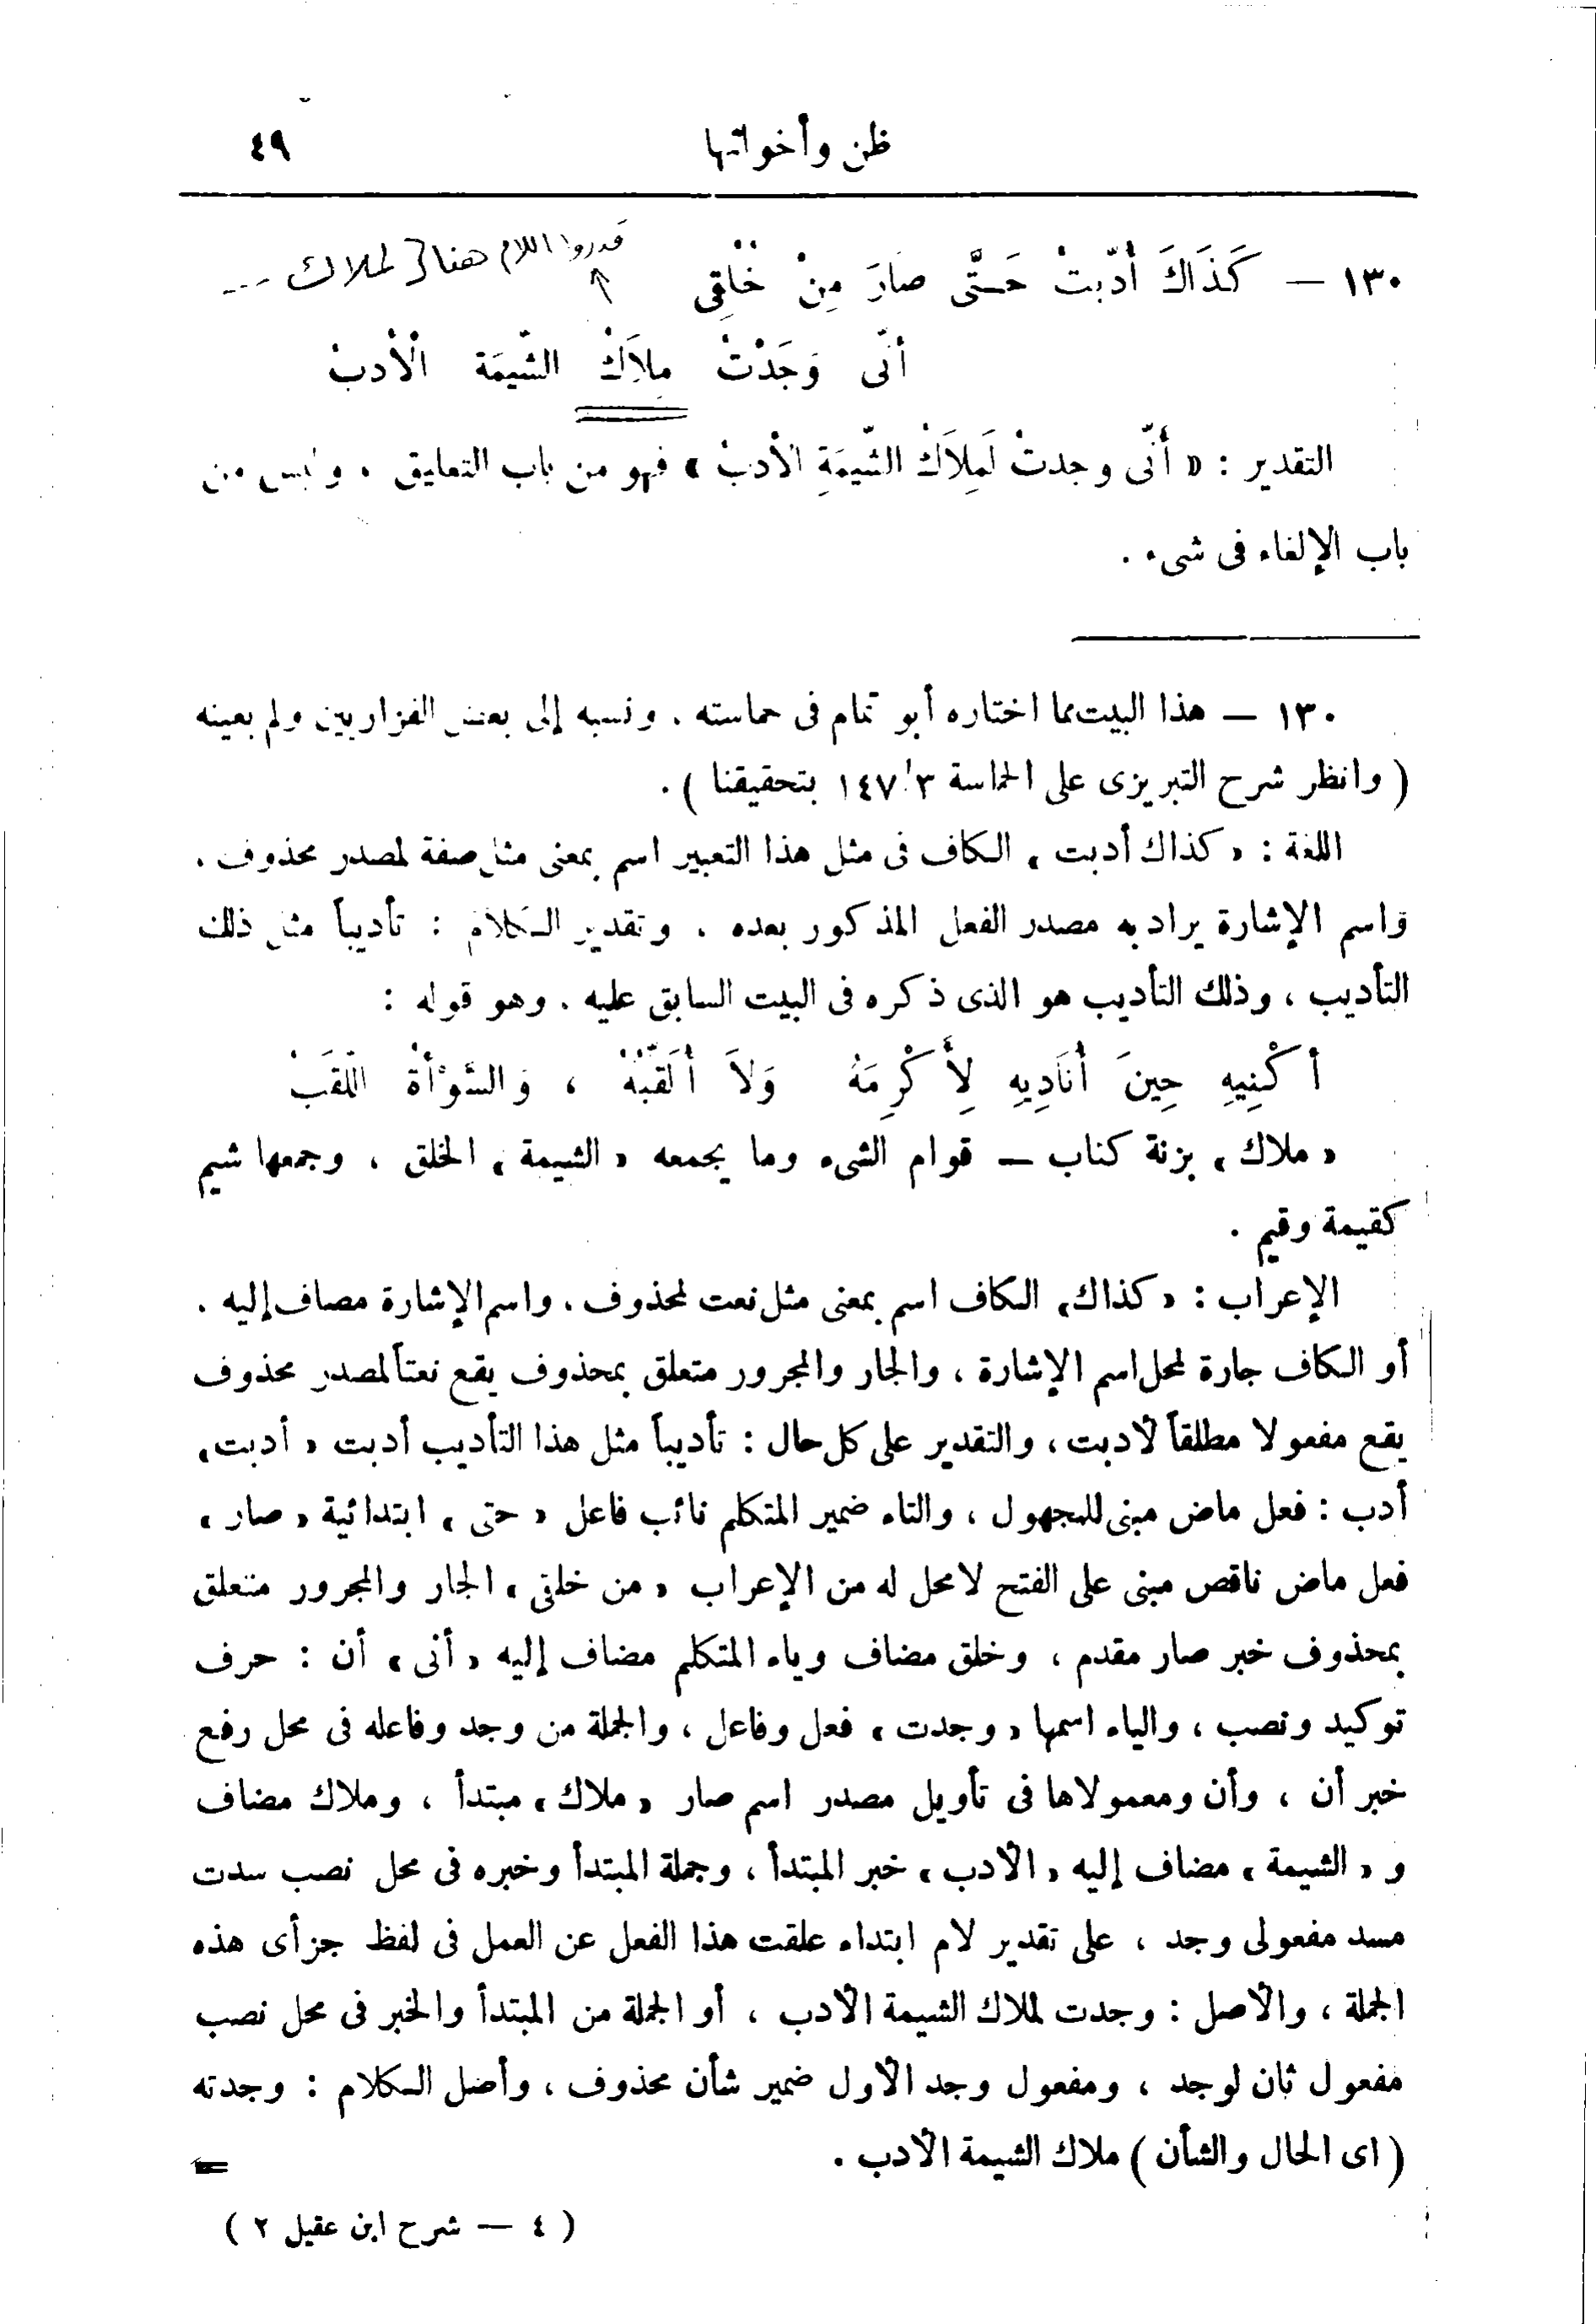 ظن وأخواتها ٤٩
قدروا اللام هنا لملاك ---
١٣٠ — كَذَاكَ أُدِّبْتُ حَتَّى صَارَ مِنْ خُلُقِى
أَنِّى وَجَدْتُ مِلاَكُ الشِّيمَةِ الْأَدَبُ
التقدير : « أَنِّى وجدتُ لَمِلاَكُ الشِّيمَةِ الأدبُ » فهو من باب التعليق ، وليس من
باب الإلغاء فى شىء .
١٣٠ — هذا البيت مما اختاره أبو تمام فى حماسته ، ونسبه إلى بعض الفزاريين ولم يعينه
( وانظر شرح التبريزى على الحماسة ٣/ ١٤٧ بتحقيقنا ) .
اللغة : « كذاك أدبت » الكاف فى مثل هذا التعبير اسم بمعنى مثل صفة لمصدر محذوف ،
واسم الإشارة يراد به مصدر الفعل المذكور بعده ، وتقدير الكلام : تأديباً مثل ذلك
التأديب ، وذلك التأديب هو الذى ذكره فى البيت السابق عليه ، وهو قوله :
أَكْنِيهِ حِينَ أُنَادِيهِ لِأُكْرِمَهُ وَلاَ أُلَقِّبُهُ ، وَالسَّوْأَةُ اللَّقَبُ
« ملاك » بزنة كتاب — قوام الشىء وما يجمعه « الشيمة » الخلق ، وجمعها شيم
كقيمة وقيم .
الإعراب : « كذاك » الكاف اسم بمعنى مثل نعت لمحذوف ، واسم الإشارة مضاف إليه ،
أو الكاف جارة لمحل اسم الإشارة ، والجار والمجرور متعلق بمحذوف يقع نعتاً لمصدر محذوف
يقع مفعولا مطلقاً لأدبت ، والتقدير على كل حال : تأديباً مثل هذا التأديب أدبت « أدبت »
أدب : فعل ماض مبنى للمجهول ، والتاء ضمير المتكلم نائب فاعل « حتى » ابتدائية « صار »
فعل ماض ناقص مبنى على الفتح لا محل له من الإعراب « من خلقى » الجار والمجرور متعلق
بمحذوف خبر صار مقدم ، وخلق مضاف وياء المتكلم مضاف إليه « أنى » أن : حرف
توكيد ونصب ، والياء اسمها « وجدت » فعل وفاعل ، والجملة من وجد وفاعله فى محل رفع
خبر أن ، وأن ومعمولاها فى تأويل مصدر اسم صار « ملاك » مبتدأ ، وملاك مضاف
و « الشيمة » مضاف إليه « الأدب » خبر المبتدأ ، وجملة المبتدأ وخبره فى محل نصب سدت
مسد مفعولى وجد ، على تقدير لام ابتداء علقت هذا الفعل عن العمل فى لفظ جزأى هذه
الجملة ، والأصل : وجدت لملاك الشيمة الأدب ، أو الجملة من المبتدأ والخبر فى محل نصب
مفعول ثان لوجد ، ومفعول وجد الأول ضمير شأن محذوف ، وأصل الكلام : وجدته
( اى الحال والشأن ) ملاك الشيمة الأدب . =
( ٤ — شرح ابن عقيل ٢ )